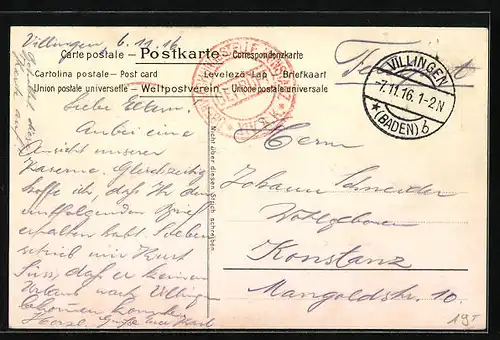 Villingen, 6.11.16
Carte postale — Postkarte — Correspondenzkarte
Cartolina postale — Post card Levelező-Lap — Briefkaart
Union postale universelle — Weltpostverein — Unione postale universale
VILLINGEN
7.11.16. 1-2N
(BADEN) b
Nicht über diesen Strich schreiben
Liebe Eltern.
Anbei eine
Ansicht unserer
Kaserne. Gleichzeitig
hoffe ich, daß Ihr den
Brief
erhalten habt. Soeben
schrieb mir Kurt
Süss, daß er keinen
Urlaub nach Villingen
bekommen
Herzl. Grüße Euer Karl
Herrn
Johann Schneider
Wohlgeboren
Konstanz
Mangoldstr. 10.